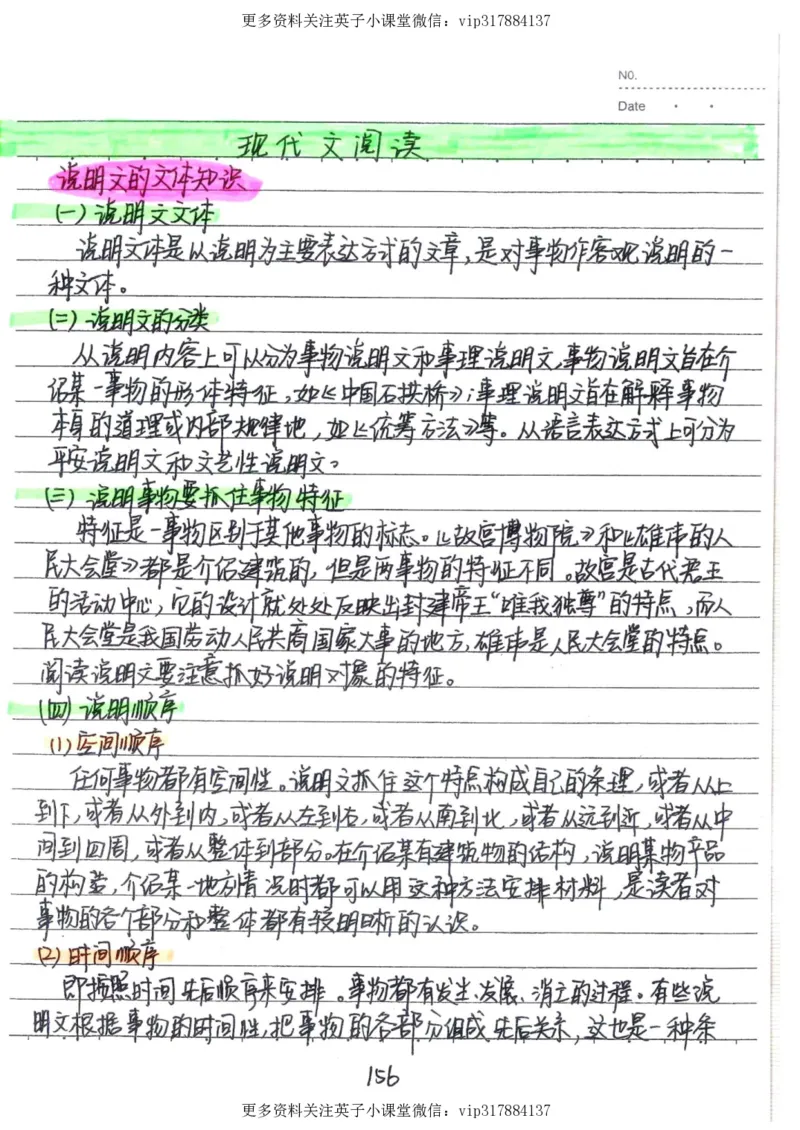 更多资料关注英子小课堂微信：vip317884137
NO.
Date
现代文阅读
说明文的文体知识
(一) 说明文文体
说明文体是以说明为主要表达方式的文章,是对事物作客观说明的一
种文体。
(二) 说明文的分类
从说明内容上可以分为事物说明文和事理说明文,事物说明文旨在介
绍某一事物的形体特征,如《中国石拱桥》;事理说明文旨在解释事物
本身的道理或内部规律地,如《统筹方法》等。从语言表达方式上可分为
平安说明文和文艺性说明文。
(三) 说明事物要抓住事物特征
特征是一事物区别于其他事物的标志。《故宫博物院》和《雄伟的人
民大会堂》都是介绍建筑的,但是两事物的特征不同。故宫是古代君王
的活动中心,它的设计就处处反映出封建帝王“唯我独尊”的特点,而人
民大会堂是我国劳动人民共商国家大事的地方,雄伟是人民大会堂的特点。
阅读说明文要注意抓好说明对象的特征。
(四) 说明顺序
(1) 空间顺序
任何事物都有空间性。说明文抓住这个特点构成自己的条理,或者从上
到下,或者从外到内,或者从左到右,或者从南到北,或者从远到近,或者从中
间到四周,或者从整体到部分。在介绍某有建筑物的结构,说明某物产品
的构造,介绍某一地方情况时都可以用这种方法安排材料,是读者对
事物的各个部分和整体都有较明晰的认识。
(2) 时间顺序
即按照时间先后顺序来安排。事物都有发生、发展、消亡的过程。有些说
明文根据事物的时间性,把事物的各部分组成先后关系,这也是一种条
156
更多资料关注英子小课堂微信：vip317884137